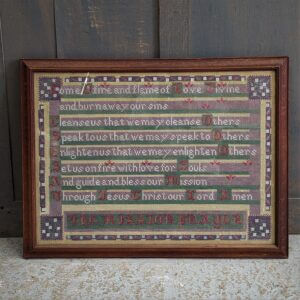 Come Fire and flame of Love Divine
And burn away our sins
Cleanse us that we may cleanse Others
Speak to us that we may speak to Others
Enlighten us that we may enlighten Others
Set us on fire with love for Souls
And guide and bless our Mission
Through Jesus Christ our Lord Amen
THE MISSION PRAYER